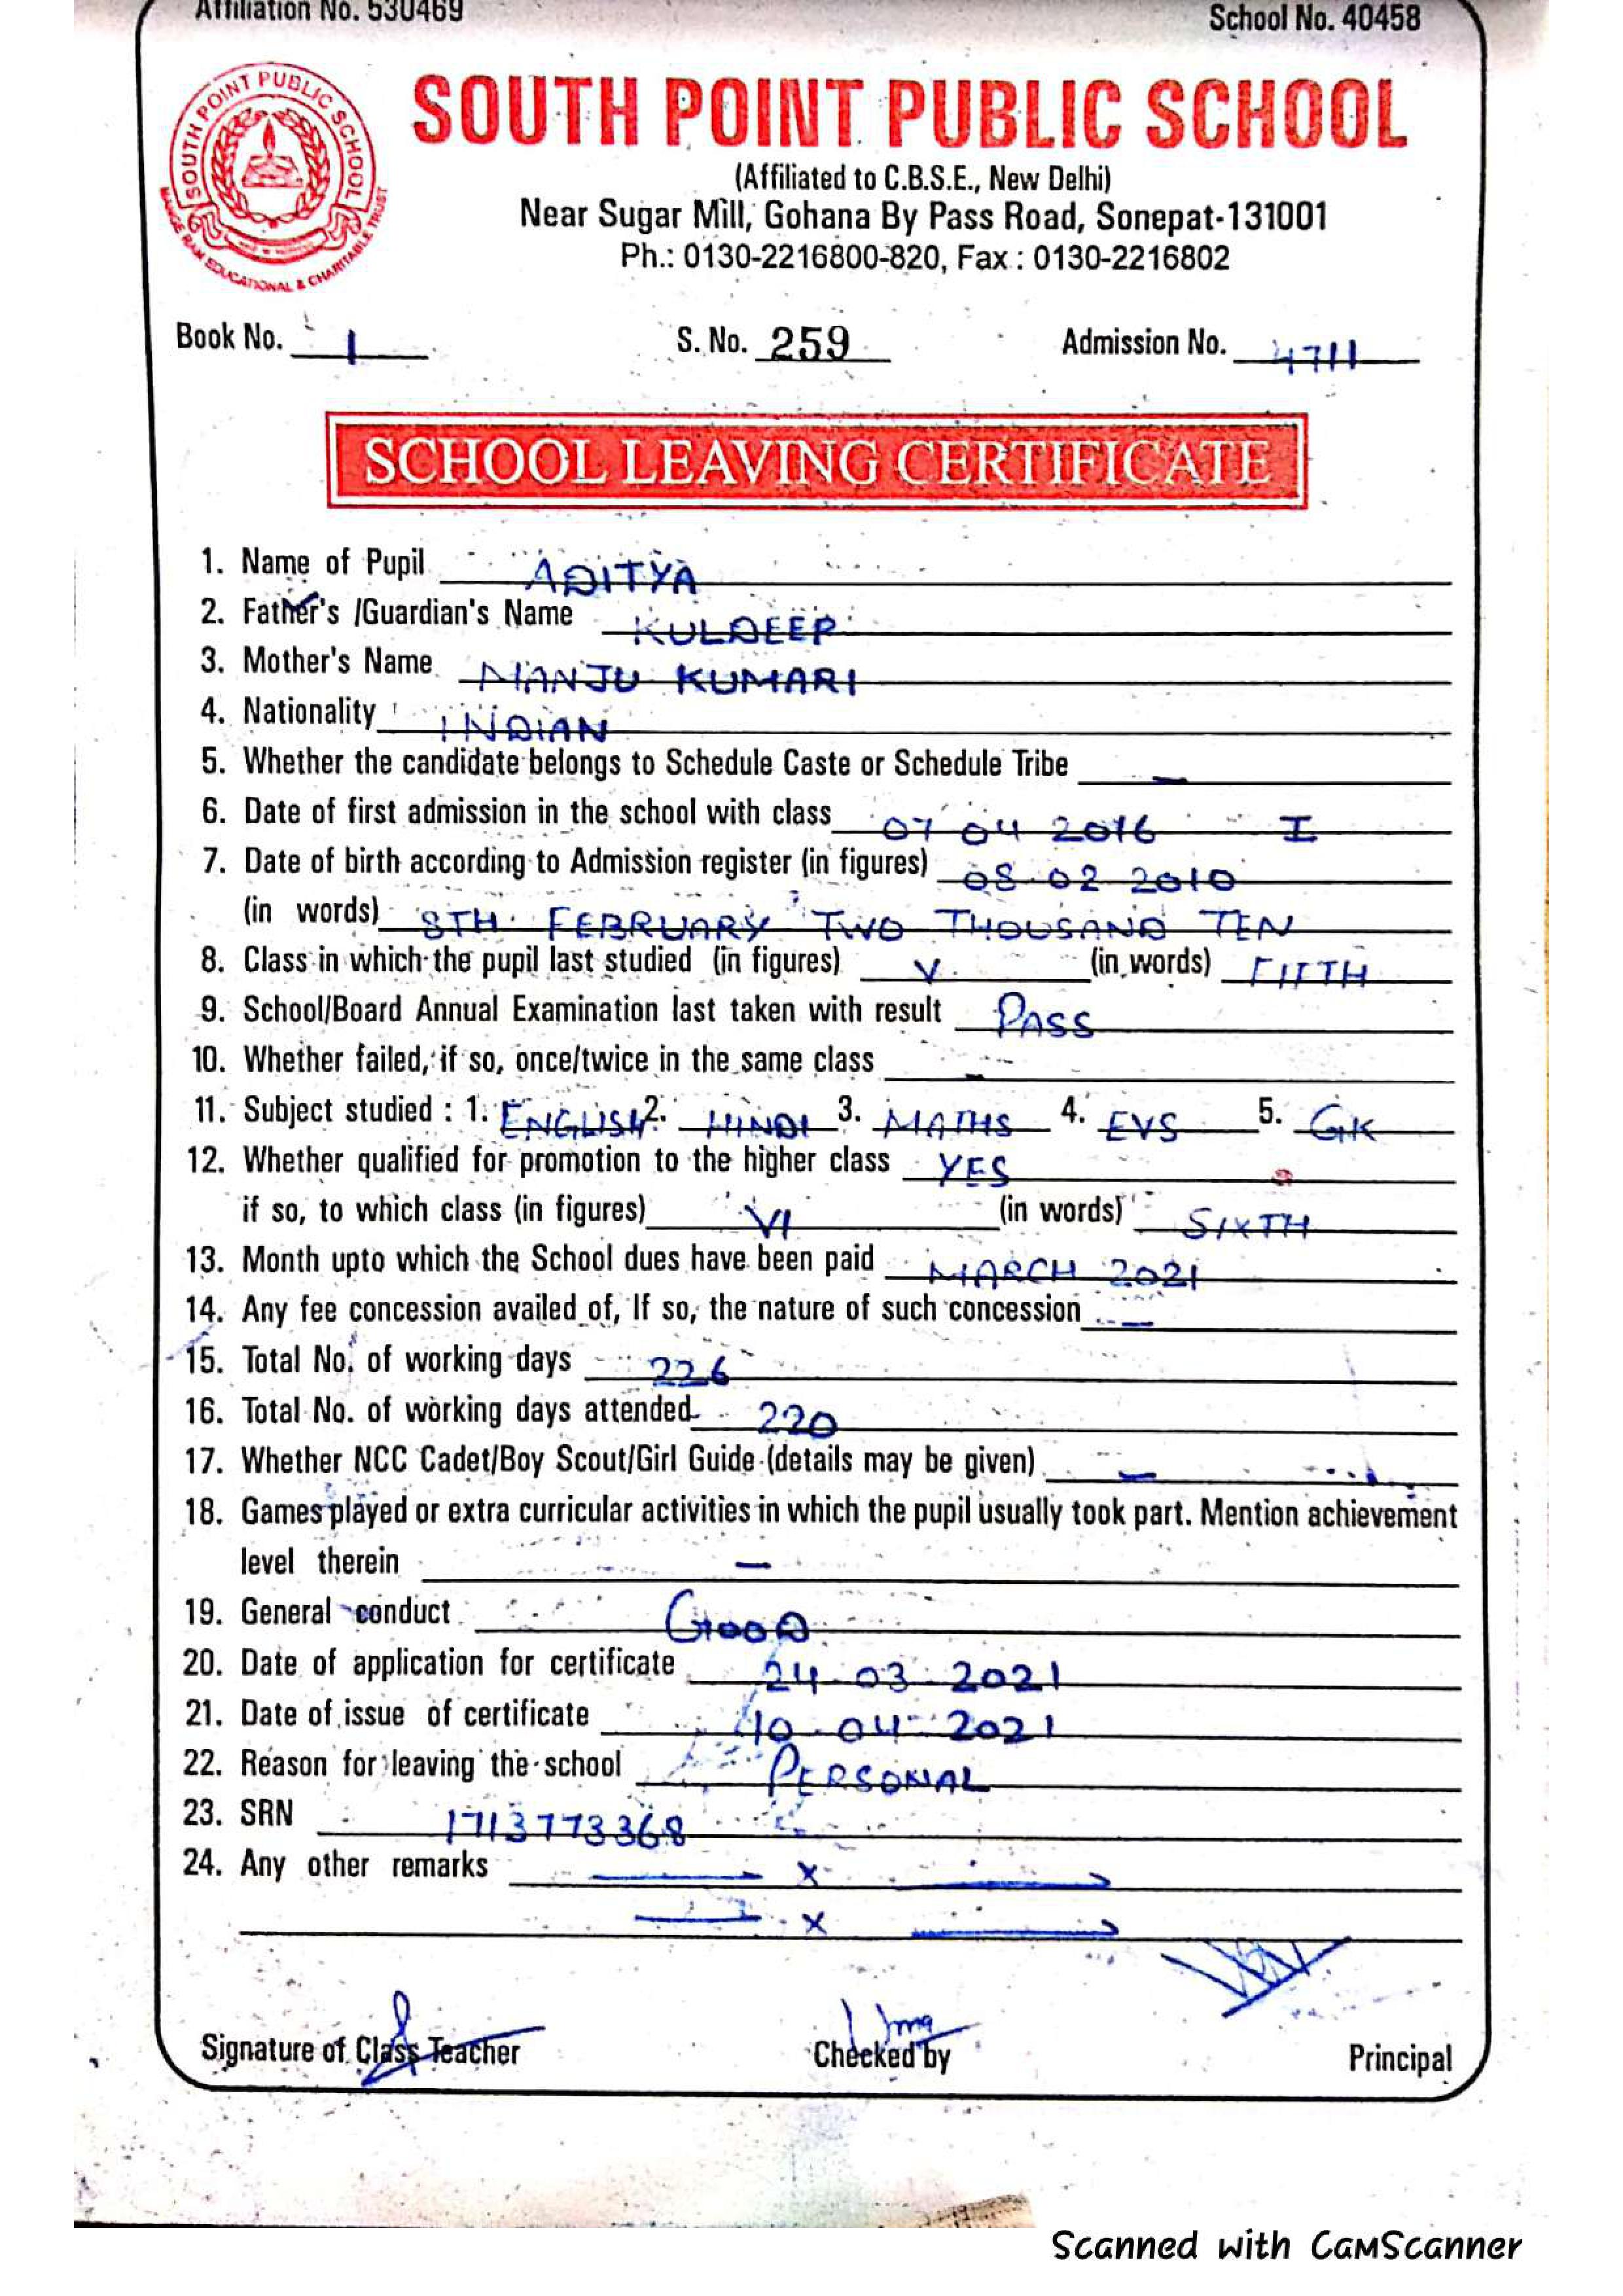 Affiliation No. 530469 School No. 40458
SOUTH POINT PUBLIC SCHOOL
MANGE RAM EDUCATIONAL & CHARITABLE TRUST
SOUTH POINT PUBLIC SCHOOL
(Affiliated to C.B.S.E., New Delhi)
Near Sugar Mill, Gohana By Pass Road, Sonepat-131001
Ph.: 0130-2216800-820, Fax : 0130-2216802
Book No. 1 S. No. 259 Admission No. 4711
SCHOOL LEAVING CERTIFICATE
1. Name of Pupil ADITYA
2. Father's /Guardian's Name KULDEEP
3. Mother's Name MANJU KUMARI
4. Nationality INDIAN
5. Whether the candidate belongs to Schedule Caste or Schedule Tribe —
6. Date of first admission in the school with class 07 04 2016 I
7. Date of birth according to Admission register (in figures) 08 02 2010
(in words) 8TH FEBRUARY TWO THOUSAND TEN
8. Class in which the pupil last studied (in figures) V (in words) FIFTH
9. School/Board Annual Examination last taken with result PASS
10. Whether failed, if so, once/twice in the same class —
11. Subject studied : 1. ENGLISH 2. HINDI 3. MATHS 4. EVS 5. GK
12. Whether qualified for promotion to the higher class YES
if so, to which class (in figures) VI (in words) SIXTH
13. Month upto which the School dues have been paid MARCH 2021
14. Any fee concession availed of, If so, the nature of such concession —
15. Total No. of working days 226
16. Total No. of working days attended 220
17. Whether NCC Cadet/Boy Scout/Girl Guide (details may be given) —
18. Games played or extra curricular activities in which the pupil usually took part. Mention achievement
level therein —
19. General conduct GOOD
20. Date of application for certificate 24-03-2021
21. Date of issue of certificate 10-04-2021
22. Reason for leaving the school PERSONAL
23. SRN 1713773368
24. Any other remarks — x —
— x —
Signature of Class Teacher Checked by Principal
Scanned with CamScanner